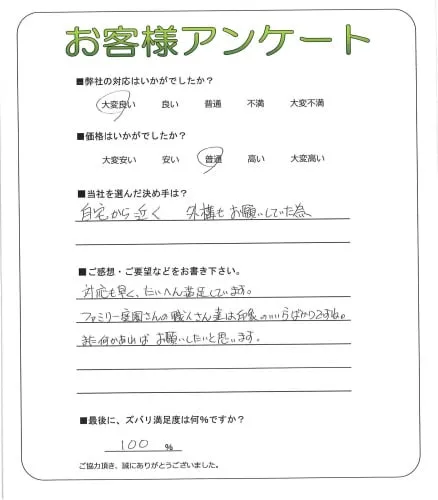 お客様アンケート
■弊社の対応はいかがでしたか?
大変良い 良い 普通 不満 大変不満
■価格はいかがでしたか?
大変安い 安い 普通 高い 大変高い
■当社を選んだ決め手は?
自宅から近く 外構もお願いしていた為、
■ご感想・ご要望などをお書き下さい。
対応も早く、たいへん満足しています。
ファミリー庭園さんの職人さん達は印象のいい方ばかりですね。
また何かあれば お願いしたいと思います。
■最後に、ズバリ満足度は何%ですか?
100 %
ご協力頂き、誠にありがとうございました。